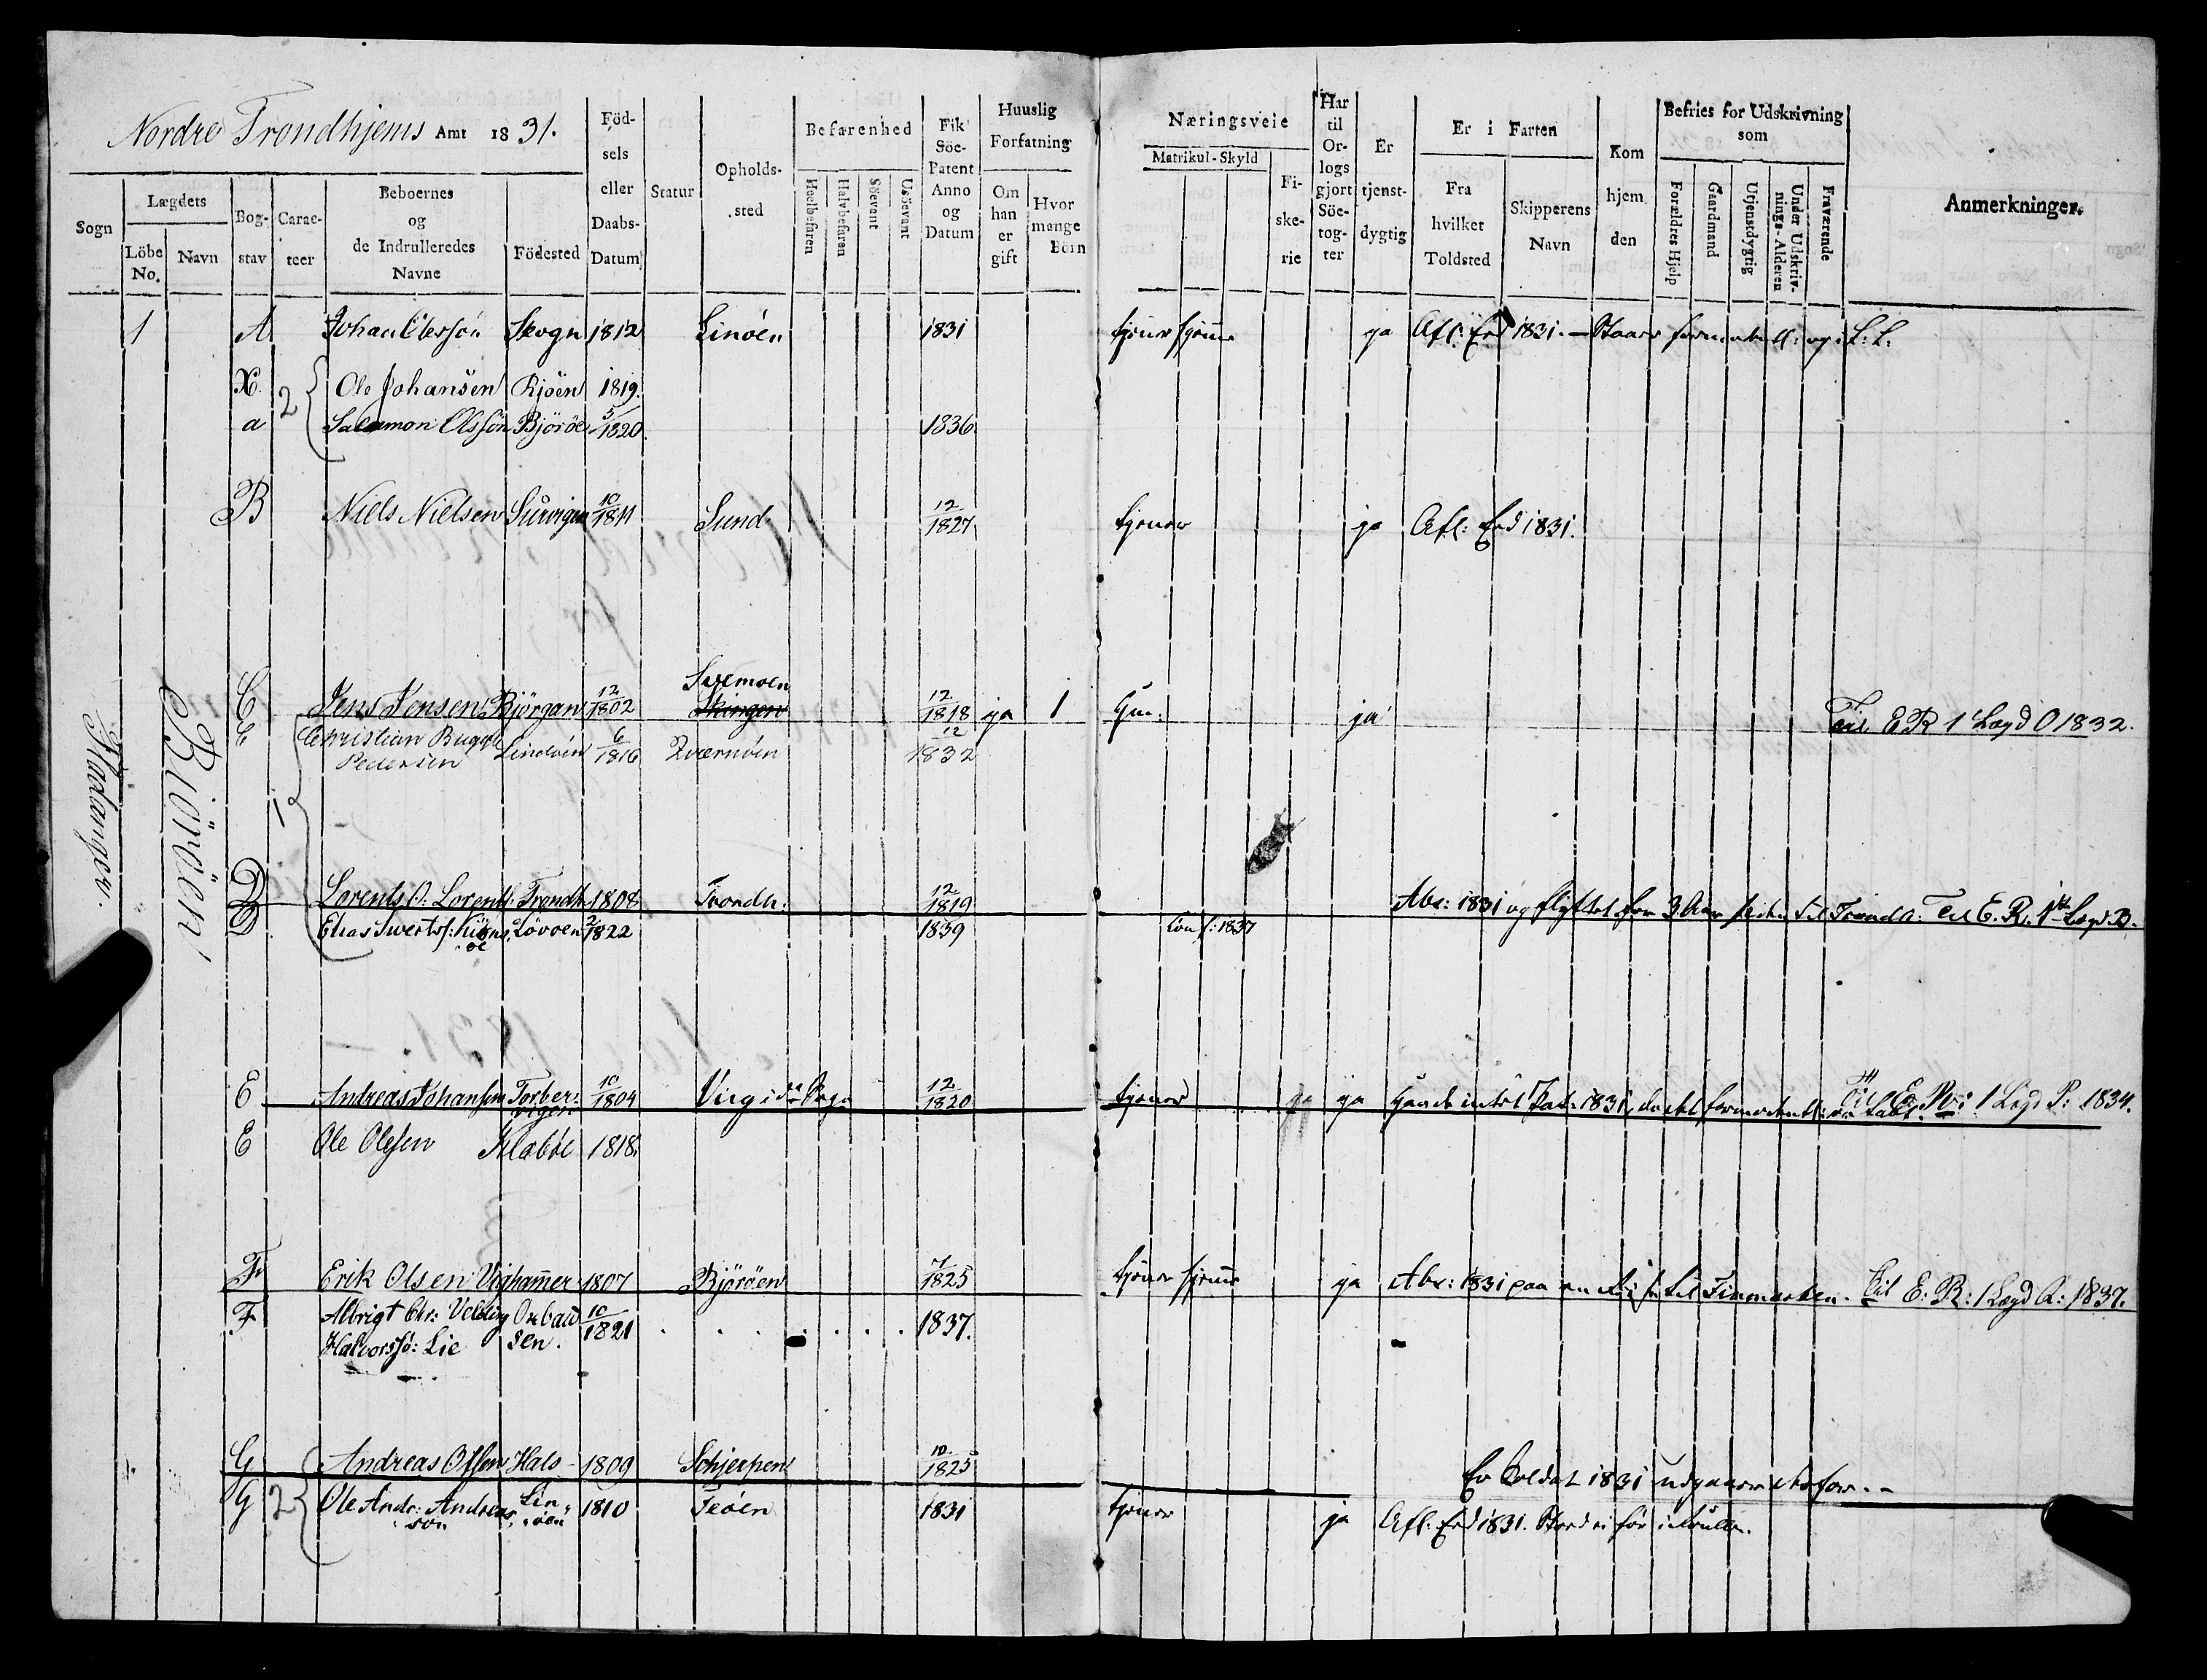 Nordre Trondhjems Amt 1831.
Sogn
Lægdets
Löbe No.
Navn
Bog-stav
Carac-teer
Beboernes og de Indrulleredes Navne
Födested
Föd-sels eller Daabs-Datum
Statur
Opholds-sted
Befarenhed
Heelbefaren
Halvbefaren
Söevant
Usöevant
Fik Söe-Patent Anno og Datum
Huuslig Forfatning
Om han er gift
Hvor mange Börn
Næringsveie
Matrikul-Skyld
Fi-ske-rie
Har til Or-logs gjort Söe-tog-ter
Er tjenst-dygtig
Er i Farten
Fra hvilket Toldsted
Skipperens Navn
Kom hjem den
Befries for Udskrivning som
Forældres Hjelp
Gaardmand
Utjenstdygtig
Under Udskriv-nings-Alderen
Fraværende
Anmerkninger.
Fladanger.
Biöröen
1 A Johan Olessön Skogn 1812 Linöen 1831 tjener hjemme ja Afl: Ed 1831.
2 Ole Johansen Bjöen 1819.
a Salamon Olssön Björöe 5/1820. 1836
B Niels Nielsen Survigen 10/1811 Sund 12/1827 tjener ja Afl: Ed 1831.
C Jens Jensen Björgan 12/1802 Svemoen Skingen 12/1818 ja 1 Gm: ja Til E R 1 Lægd O 1832.
1 C Christian Bugge Pedersen Lindöen 6/1816 Qværnöen 12/1832
D Lorents O: Lorents: Trondh: 1808 Trondh: 12/1819 Abs: 1831 og flyttet for 3 Aar siden til Trondh: Til E. R. 1ste Lægd B.
D Elias Sivertss: Lövöen 2/1822 1839 Conf: 1837
E Andreas Johansen Torbersvigen 10/1804 Virgids Öen 12/1820 tjener ja ja Til E. R: 1 Lægd P: 1834.
E Ole Olssen Klaböe 1818.
F Erik Olsen Vighammer 1807 Björöen 7/1825 tjener hjemme ja Abs: 1831 paa en til Finmarken. Til E: R: 1 Lægd Q: 1837.
F Albrigt Chr: Velding Halvorssö: Lie Oxbaadsen. 10/1821 1837.
G Andreas Olsen Hals 1809 Schjerpen 10/1825 Er Soldat 1831 udgaaer derfor.
2 G Ole Andr: Andreassön Linöen 1810 Teöen 1831 tjener ja Afl: Ed 1831. Stod ei för i Rullen.